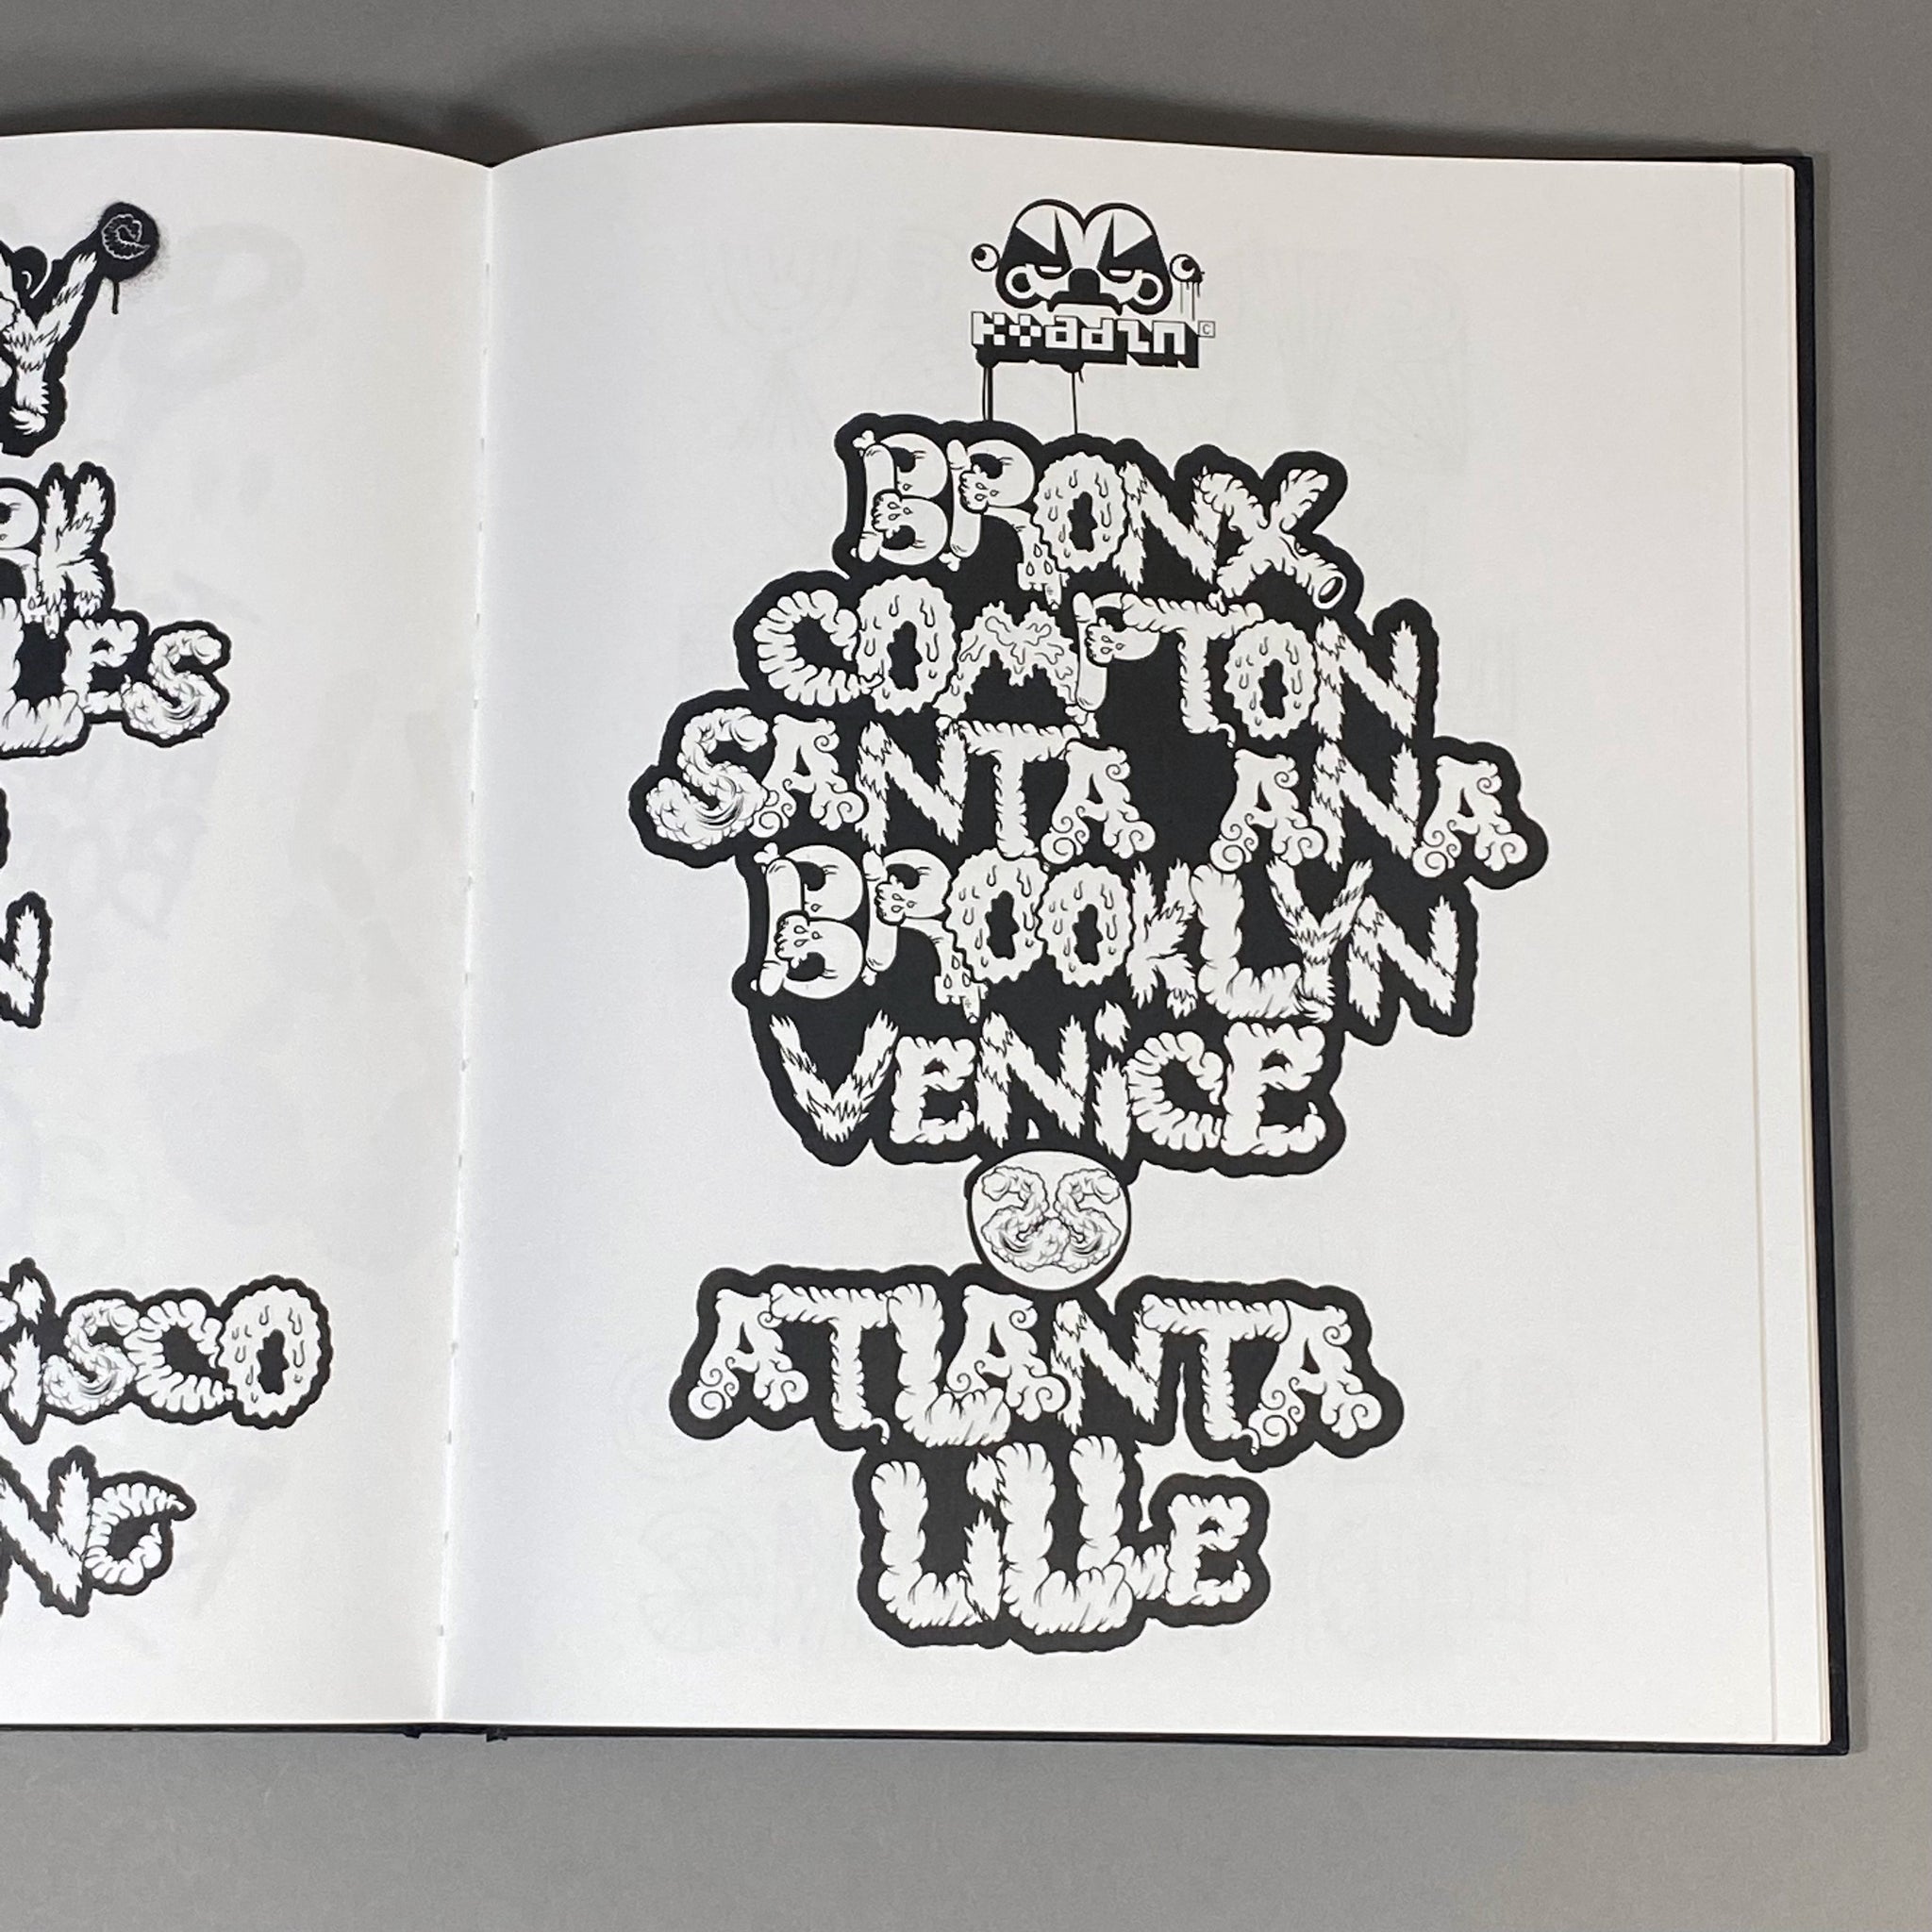 Y
RK
LES
N
isco
NG
Koadzn ©
BRONX
COMPTON
SANTA ANA
BROOKLYN
VENiCE
ATLANTA
LiLLE